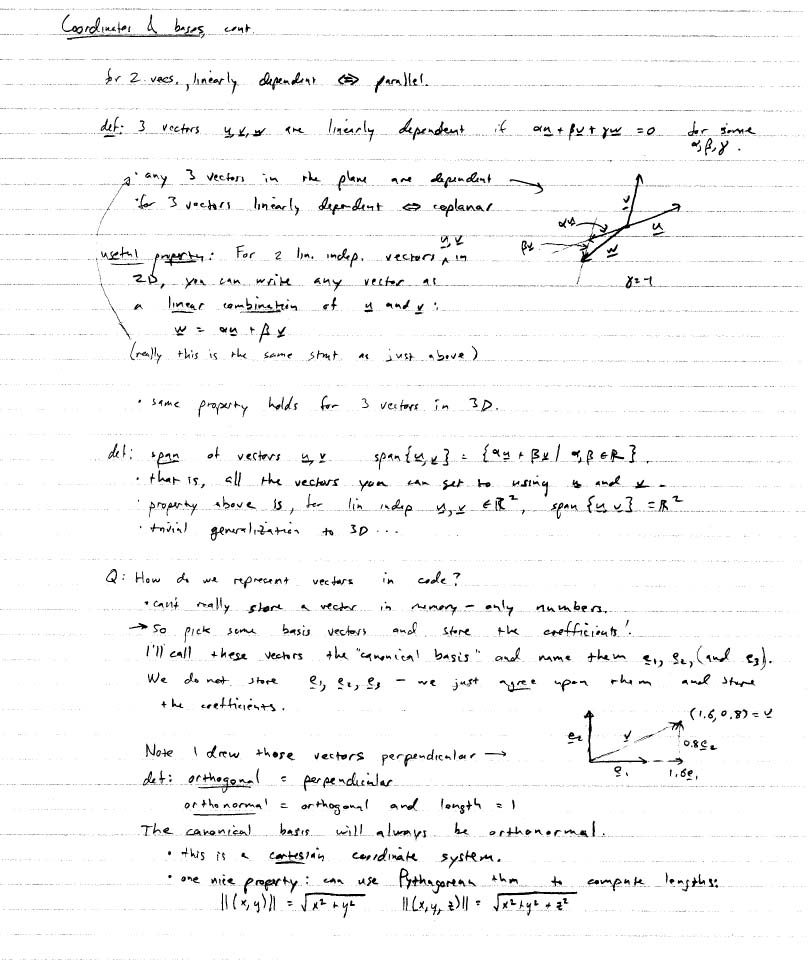 Coordinates & bases, cont.
for 2 vecs., linearly dependent ⇔ parallel.
def: 3 vectors u, v, w are linearly dependent if αu + βv + γw = 0 for some
α, β, γ.
· any 3 vectors in the plane are dependent
· for 3 vectors linearly dependent ⇔ coplanar
v
αu
u
βv
w
γ=-1
useful property: For 2 lin. indep. vectors u, v in
2D, you can write any vector as
a linear combination of u and v:
w = αu + βv
(really this is the same stmt as just above)
· same property holds for 3 vectors in 3D.
def: span of vectors u, v span{u, v} = {αu + βv | α, β ∈ R}.
· that is, all the vectors you can get to using u and v.
· property above is, for lin indep u, v ∈ R², span {u v} = R²
· trivial generalization to 3D ...
Q: How do we represent vectors in code?
· can't really store a vector in memory – only numbers.
→ so pick some basis vectors and store the coefficients!
I'll call these vectors the "canonical basis" and name them e1, e2, (and e3).
We do not store e1, e2, e3 – we just agree upon them and store
the coefficients.
(1.6, 0.8) = v
e2
v
0.8e2
e1
1.6e1
Note I drew those vectors perpendicular →
def: orthogonal = perpendicular
orthonormal = orthogonal and length = 1
The canonical basis will always be orthonormal.
· this is a cartesian coordinate system.
· one nice property: can use Pythagorean thm to compute lengths:
||(x, y)|| = √x² + y² ||(x, y, z)|| = √x² + y² + z²